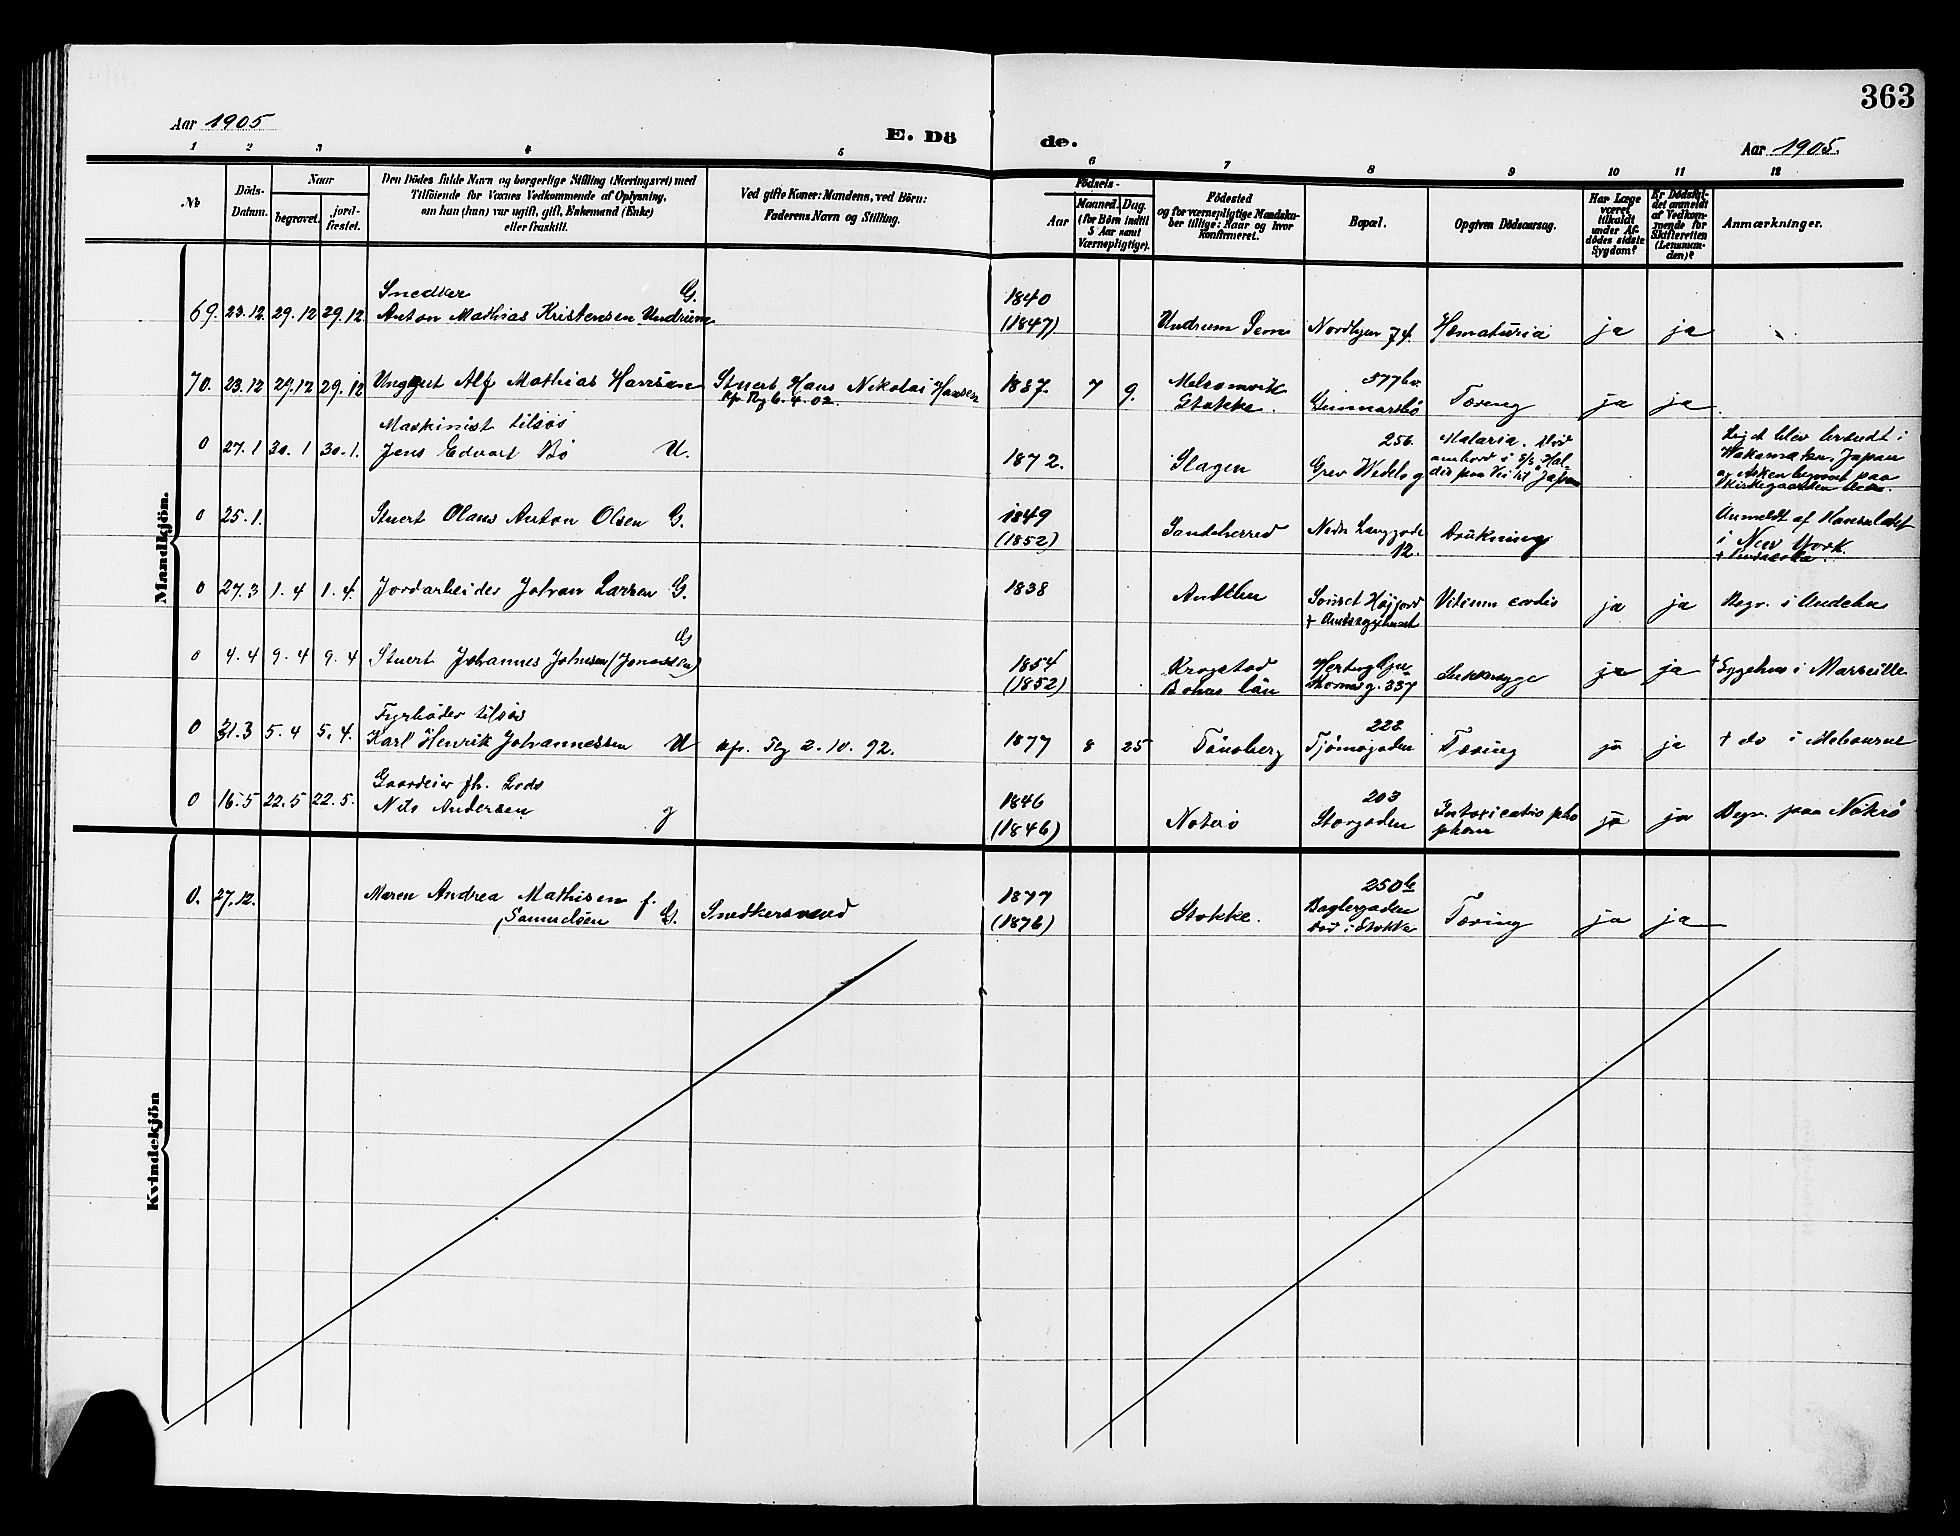 363
Aar 1905
E. Dö de.
Aar 1905.
1 2 3 4 5 6 7 8 9 10 11 12
No
Döds-
Datum.
Naar
begravet.
jord-
fæstet.
Den Dödes fulde Navn og borgerlige Stilling (Næringsvei) med
Tilföiende for Voxnes Vedkommende af Oplysning,
om han (hun) var ugift, gift, Enkemand (Enke)
eller fraskilt.
Ved gifte Koner: Mandens, ved Börn:
Faderens Navn og Stilling.
Födsels-
Aar
Maaned. Dag.
(for Börn indtil
5 Aar samt
Værnepligtige).
Födested
og for værnepligtige Mandska-
ber tillige: Naar og hvor
konfirmeret.
Bopæl.
Opgiven Dödsaarsag.
Har Læge
været
tilkaldt
under Af-
dödes sidste
Sygdom?
Er Dödsfal-
det anmeldt
af Vedkom-
mende for
Skifteretten
(Lensman-
den)?
Anmærkninger.
Mandkjön.
Snedker G. 1840
69. 23.12. 29.12 29.12. Anton Mathias Kristensen Undrum (1847) Undrum Sem Nordbyen 74. Hæmaturia ja ja
577 b.
70. 23.12 29.12 29.12 Unggut Alf Mathias Hansen Stuert Hans Nikolai Hansen 1887. 7 9. Melsomvik
Kfr. Tbg 6.4.02. Stokke. Gunnarsbö Tæring ja ja
Maskinist tilsös 256. Malaria. död Liget blev brændt i
0 27.1 30.1 30.1. Jens Edvart Bö U. 1872. Slagen Grev Wedels g ombord i S/S Hal-
dis paa Vei til Japan Wakamatzu, Japan
og Asken begravet paa
Kirkegaarden der.
0 25.1. Stuert Olaus Anton Olsen G. 1849
(1852) Sandeherred Nedre Langgade
12. Drukning Anmeldt af Konsulatet
i New York.
0 27.3 1.4 1.4. Jordarbeider Johan Larsen G. 1838 Andebu Solset Höijord
+ Amtssygehuset Vitium cordis ja ja Begr. i Andebu
G
0 4.4 9.4 9.4 Stuert Johannes Johnsen (Jonassen) 1854
(1852) Krogstad
Bohus län Hertug Gu-
thorms g. 337 Sukkersyge ja ja + Sygehus i Marseille
Fyrböder tilsös 223
0 31.3 5.4 5.4. Karl Henrik Johannessen U Kfr. Tbg 2.10.92. 1877 8 25 Tönsberg Tjömegaden Tæring ja ja + do i Melbourne
Gaardeier fh. Lods 203
0 16.5 22.5 22.5. Nils Andersen g 1846
(1846) Nöterö Storgaden Intoxicatio pho
phor ja ja Begr. paa Nöterö
Kvindekjön
250 b
0. 27.12. Maren Andrea Mathisen f.
Samuelsen G. Snedkersvend 1877
(1876) Stokke. Baglergaden
död i Stokke Tæring ja ja